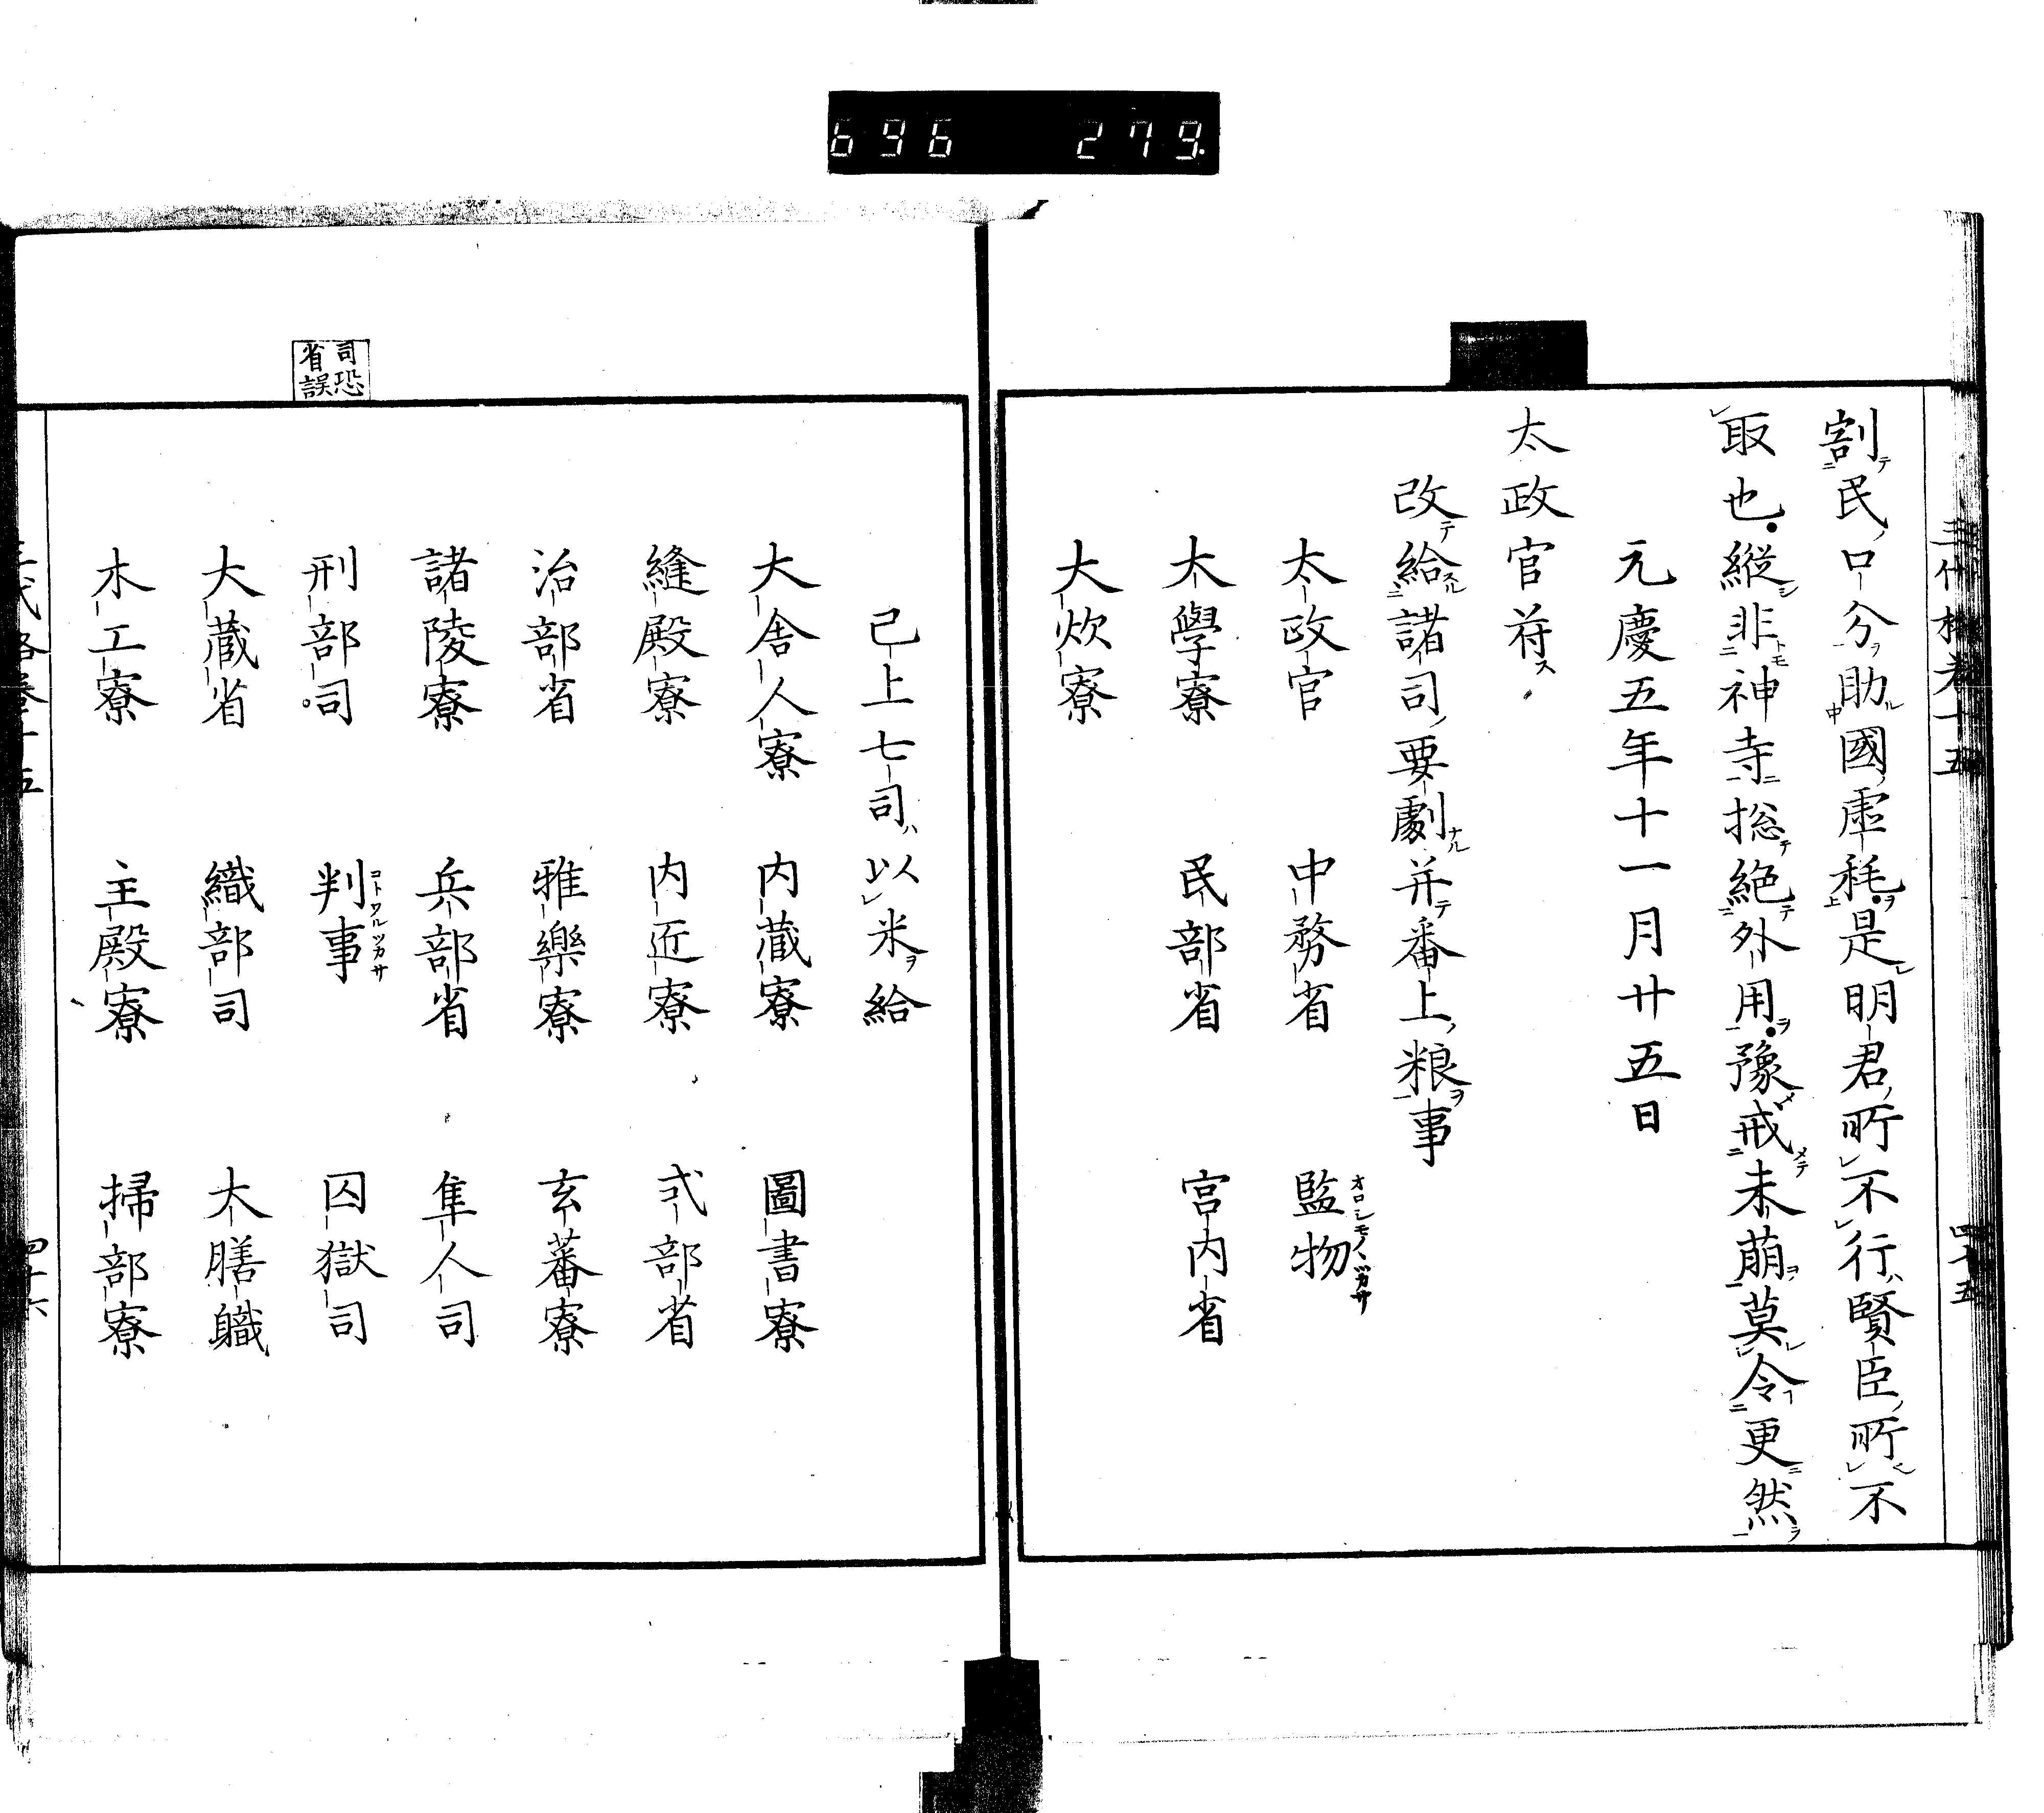 696 279
三代格卷十五 四十五
割民口分助國虛耗是明君所不行賢臣所不
取也縱非神寺揔絕外用豫戒未萠莫令更然
元慶五年十一月廿五日
太政官符
改給諸司要劇并番上粮事
太政官 中務省 監物
大學寮 民部省 宮内省
大炊寮
已上七司以米給
大舎人寮 内藏寮 圖書寮
縫殿寮 内近寮 式部省
治部省 雅樂寮 玄蕃寮
諸陵寮 兵部省 隼人司
司恐
省誤
刑部司 判事 囚獄司
大藏省 織部司 大膳軄
木工寮 主殿寮 掃部寮
三代格卷十五 四十六